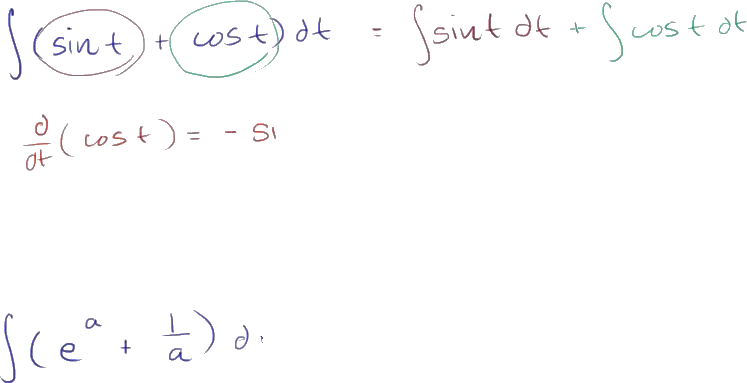 ∫(sin t + cos t) dt = ∫sin t dt + ∫cos t dt
d/dt (cos t) = - si
∫(e^a + 1/a) d